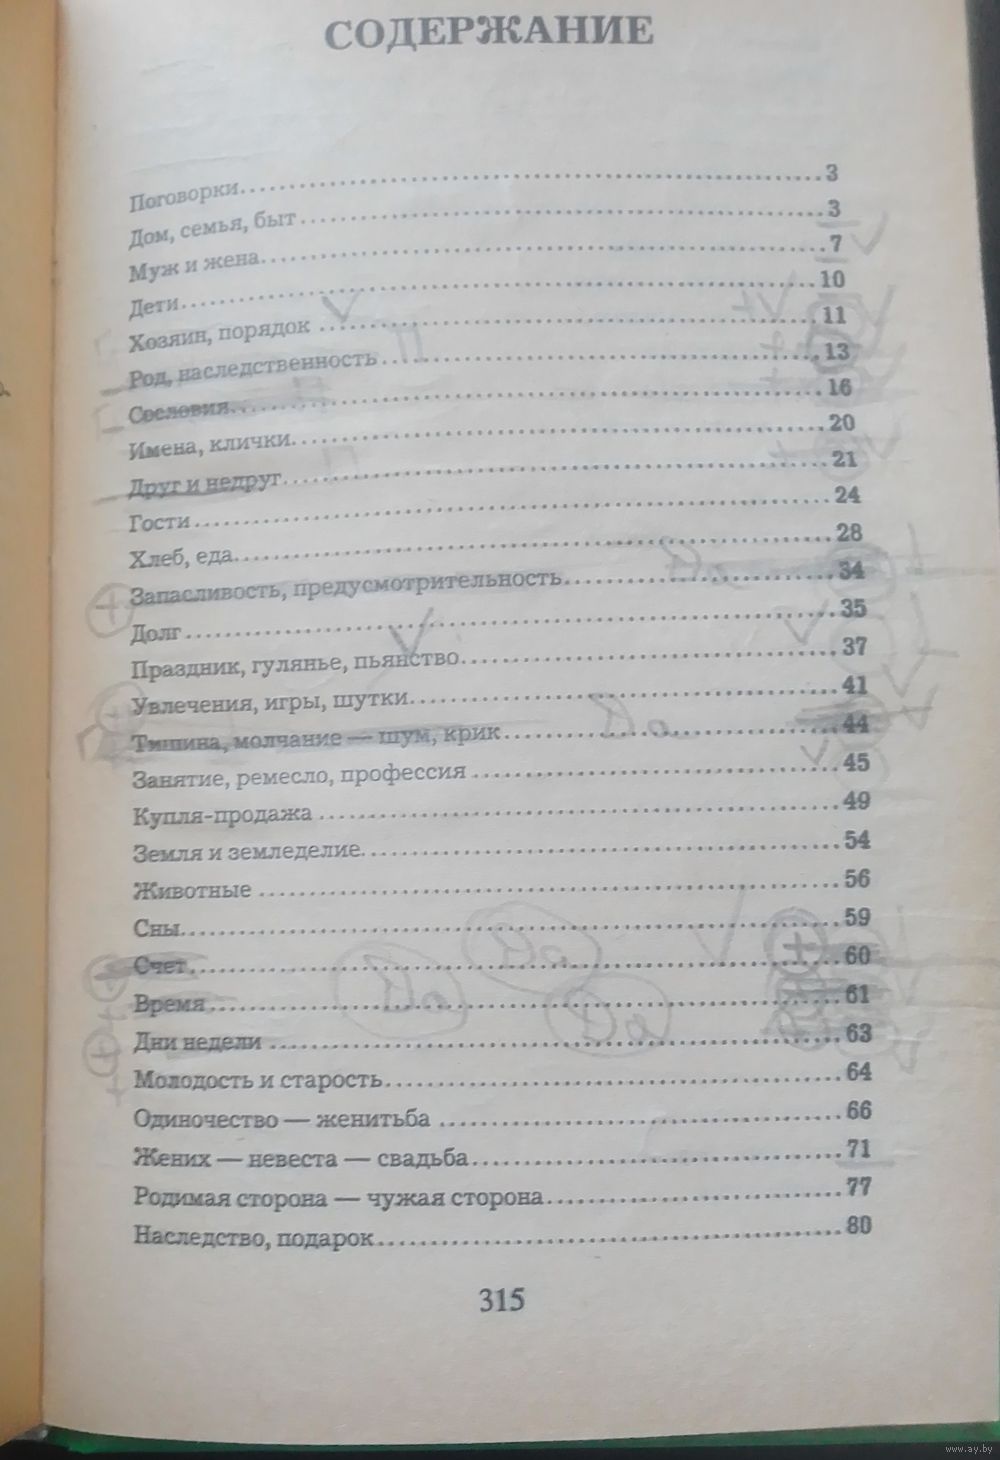 СОДЕРЖАНИЕ
Поговорки........3
Дом, семья, быт........3
Муж и жена........7
Дети........10
Хозяин, порядок........11
Род, наследственность........13
Сословия........16
Имена, клички........20
Друг и недруг........21
Гости........24
Хлеб, еда........28
Запасливость, предусмотрительность........34
Долг........35
Праздник, гулянье, пьянство........37
Увлечения, игры, шутки........41
Тишина, молчание — шум, крик........44
Занятие, ремесло, профессия........45
Купля-продажа........49
Земля и земледелие........54
Животные........56
Сны........59
Счет........60
Время........61
Дни недели........63
Молодость и старость........64
Одиночество — женитьба........66
Жених — невеста — свадьба........71
Родимая сторона — чужая сторона........77
Наследство, подарок........80
315
www.ay.by